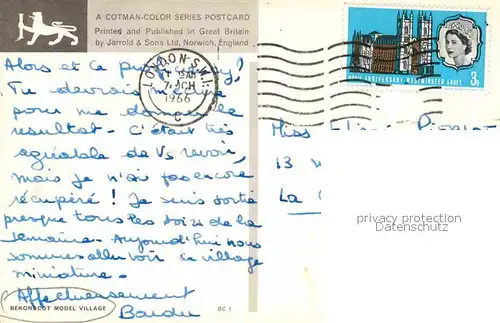 A COTMAN-COLOR SERIES POSTCARD
Printed and Published in Great Britain
by Jarrold & Sons Ltd, Norwich, England
LONDON S.W.1
1966
C
900TH ANNIVERSARY WESTMINSTER ABBEY
3D
Alors et ce
Tu devrais
pour me donner le
resultat. C'était très
agréable de Vs revoir,
mais je n'ai pas encore
récupéré! Je suis sortie
presque tous les soirs de la
semaine. Aujourd'hui nous
sommes allés voir ce village
miniature.
Affectueusement
BEKONSCOT MODEL VILLAGE
BC 1
Miss
13
La
privacy protection
www.oldthing.com